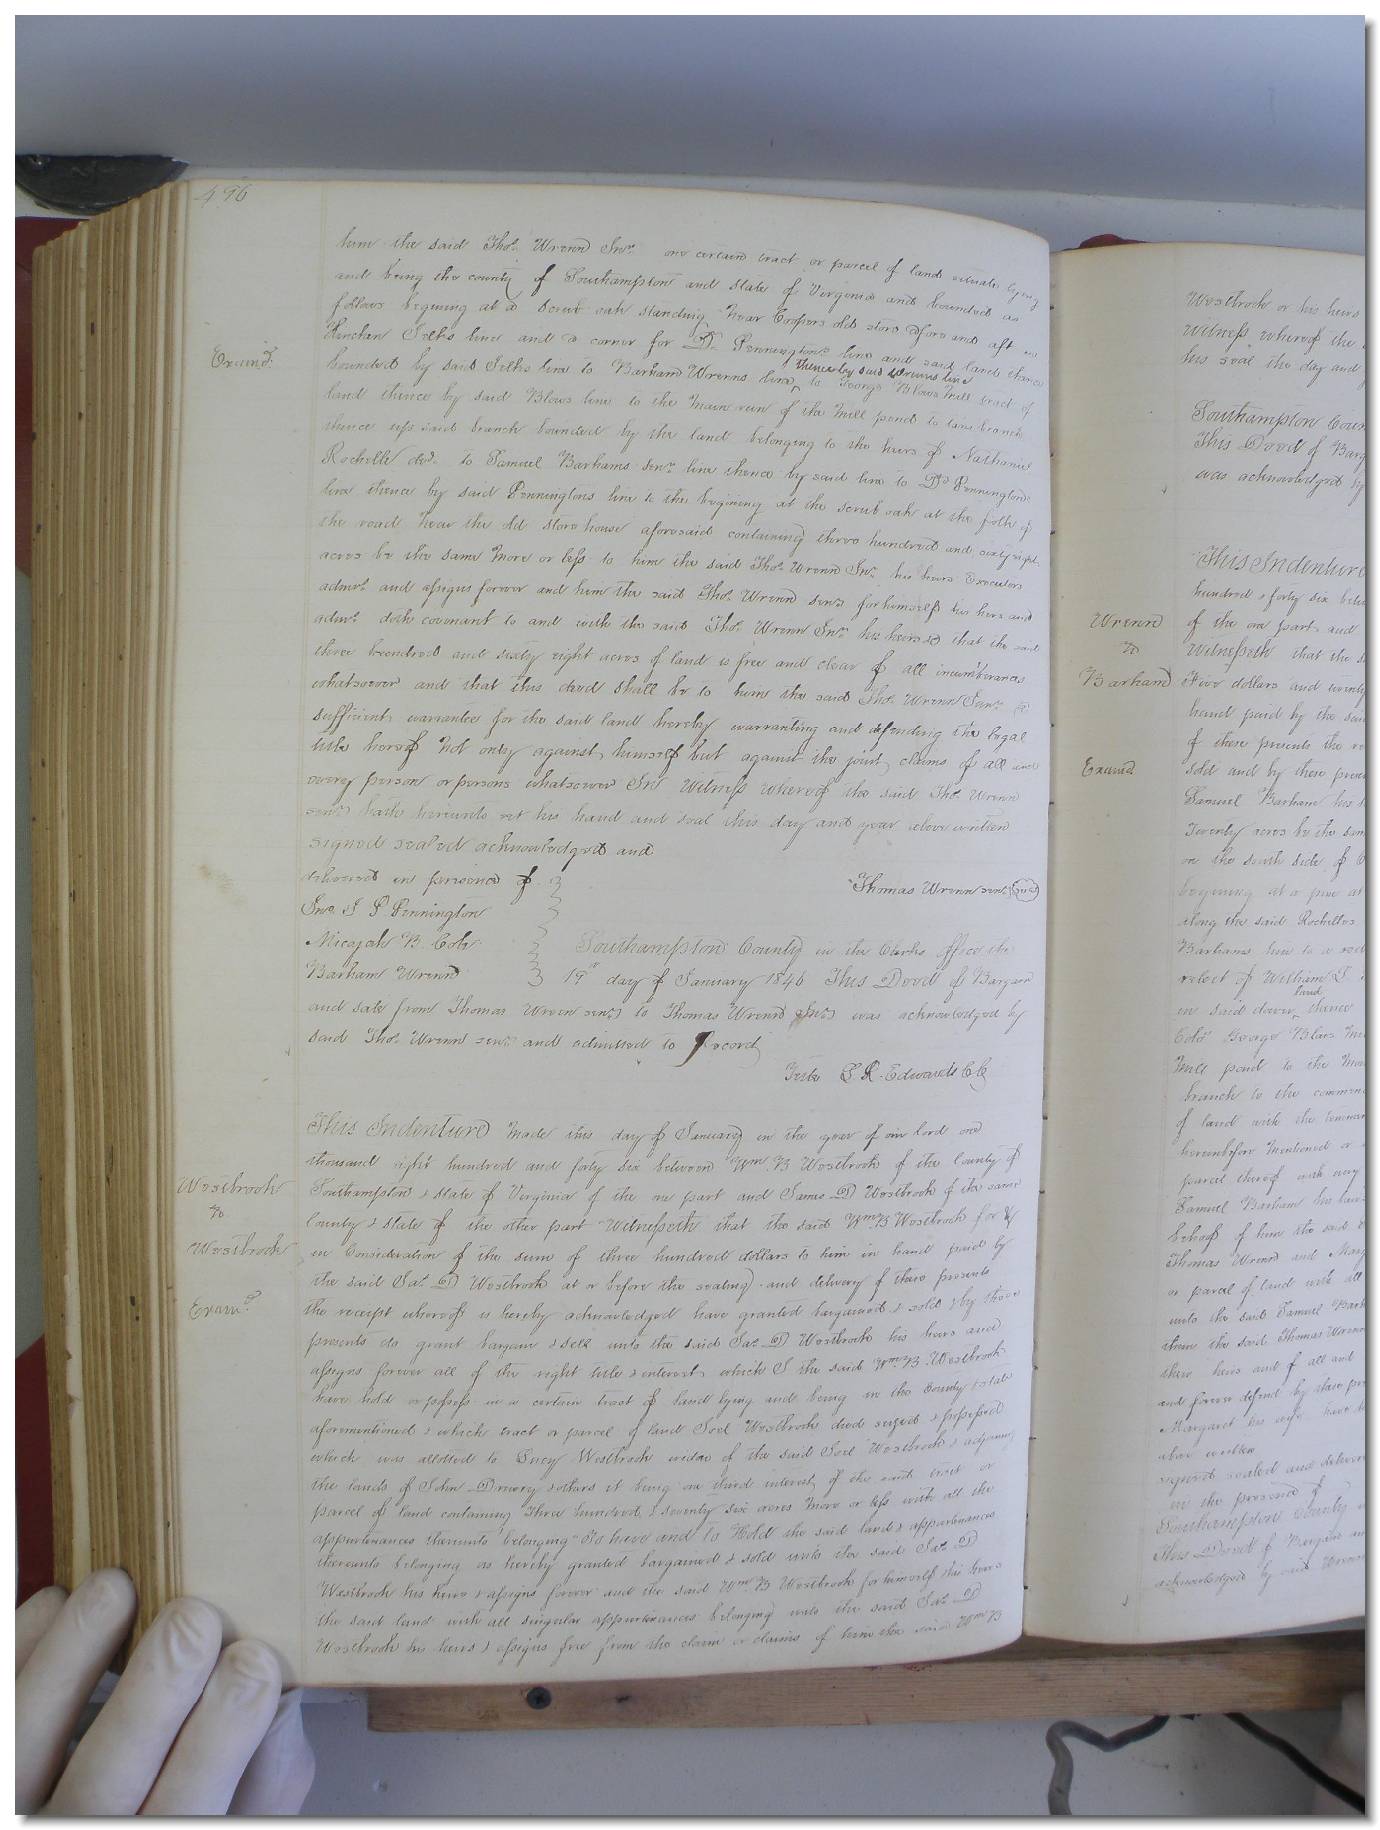 496
him the said Thos. Wrenn Jnr. one certain tract or parcel of land situate lying
and being the county of Southampton and state of Virginia and bounded as
follows begining at a scrub oak standing near Coopers old store afore and
line and a corner for Dr. Penningtons line and said land thence
Examd.
bounded by said line to Barham Wrenns line, thence by said Wrenns line to George Blows mill tract of
land thence by said Blows line to the main run of the mill pond to branch
thence up said branch bounded by the land belonging to the heirs of Nathaniel
Rochelle decd. to Samuel Barhams senr. line thence by said line to Dr. Penningtons
line thence by said Penningtons line to the begining at the scrub oak at the folk of
the road near the old store house aforesaid containing three hundred and sixty eight
acres be the same more or less to him the said Thos. Wrenn Jnr. his heirs Executors
admrs. and assigns forever and him the said Thos. Wrenn senr. for himself his heirs and
admrs. doth covenant to and with the said Thos. Wrenn Jnr. his heirs &c that the said
three hundred and sixty eight acres of land is free and clear of all incumberances
whatsoever and that this deed shall be to him the said Thos. Wrenn Junr. a
sufficient warrantee for the said land hereby warranting and defending the legal
title hereof not only against himself but against the joint claims of all and
every person or persons whatsoever In Witness whereof the said Thos. Wrenn
senr. hath hereunto set his hand and seal this day and year above written
signed sealed acknowledged and
delivered in presence of
Thomas Wrenn senr. seal
Jno. J P Pennington
Micajah B. Cole
Southampton County in the Clerks office the
Barham Wrenn
19th day of January 1846 This Deed of Bargain
and sale from Thomas Wrenn senr. to Thomas Wrenn Jnr. was acknowledged by
said Thos. Wrenn senr. and admitted to Record
Teste L R. Edwards CC
This Indenture made this day of January in the year of our lord one
thousand eight hundred and forty six between Wm. B Westbrook of the County of
Westbrook
to
Westbrook
Examd.
Southampton & state of Virginia of the one part and James D Westbrook of the same
county & state of the other part Witnesseth that the said Wm. B Westbrook for &
in Consideration of the sum of three hundred dollars to him in hand paid by
the said Jas. D Westbrook at or before the sealing and delivery of these presents
the receipt whereof is hereby acknowledged have granted bargained & sold & by these
presents do grant bargain & sell unto the said Jas. D Westbrook his heirs and
assigns forever all of the right title & interest which I the said Wm. B. Westbrook
have hold or possess in a certain tract of land lying and being in the county & state
aforementioned & which tract or parcel of land Joel Westbrook died seized & possessed
which was allotted to Lucy Westbrook widow of the said Joel Westbrook & adjoining
the lands of John Drewry & others it being one third interest of the said tract or
parcel of land containing Three hundred & seventy six acres more or less with all the
appurtenances thereunto belonging To have and to Hold the said land & appurtenances
thereunto belonging as hereby granted bargained & sold unto the said Jas. D
Westbrook his heirs & assigns forever and the said Wm. B Westbrook for himself & his heirs
the said land with all singular appurtenances belonging unto the said Jas. D
Westbrook his heirs & assigns free from the claim or claims of him the said Wm B
Westbrook or his heirs
witness whereof the
his seal the day and
Southampton Coun
This Deed of Barg
was acknowledged by
This Indenture
hundred & forty six betw
Wrenn
to
Barham
Examd
of the one part and
Witnesseth that the s
Five dollars and twenty
hand paid by the said
of these presents the re
sold and by these prese
Samuel Barham his
Twenty acres be the sam
on the south side of
begining at a pine at
along the said Rochelles
Barhams line to a
relict of William S
in said dower land thence
Colo. George Blows
Mill pond to the
branch to the commen
of land with the
hereinbefore Mentioned or
parcel thereof with every
Samuel Barham his
behoof of him the said
Thomas Wrenn and
or parcel of land with all
unto the said Samuel Barh
them the said Thomas Wrenn
their heirs and of all and
and forever defend by these pre
Margaret his wife have
above written
signed sealed and deliver
in the presence of
Southampton County
This Deed of Bargain an
acknowledged by said Wrenn